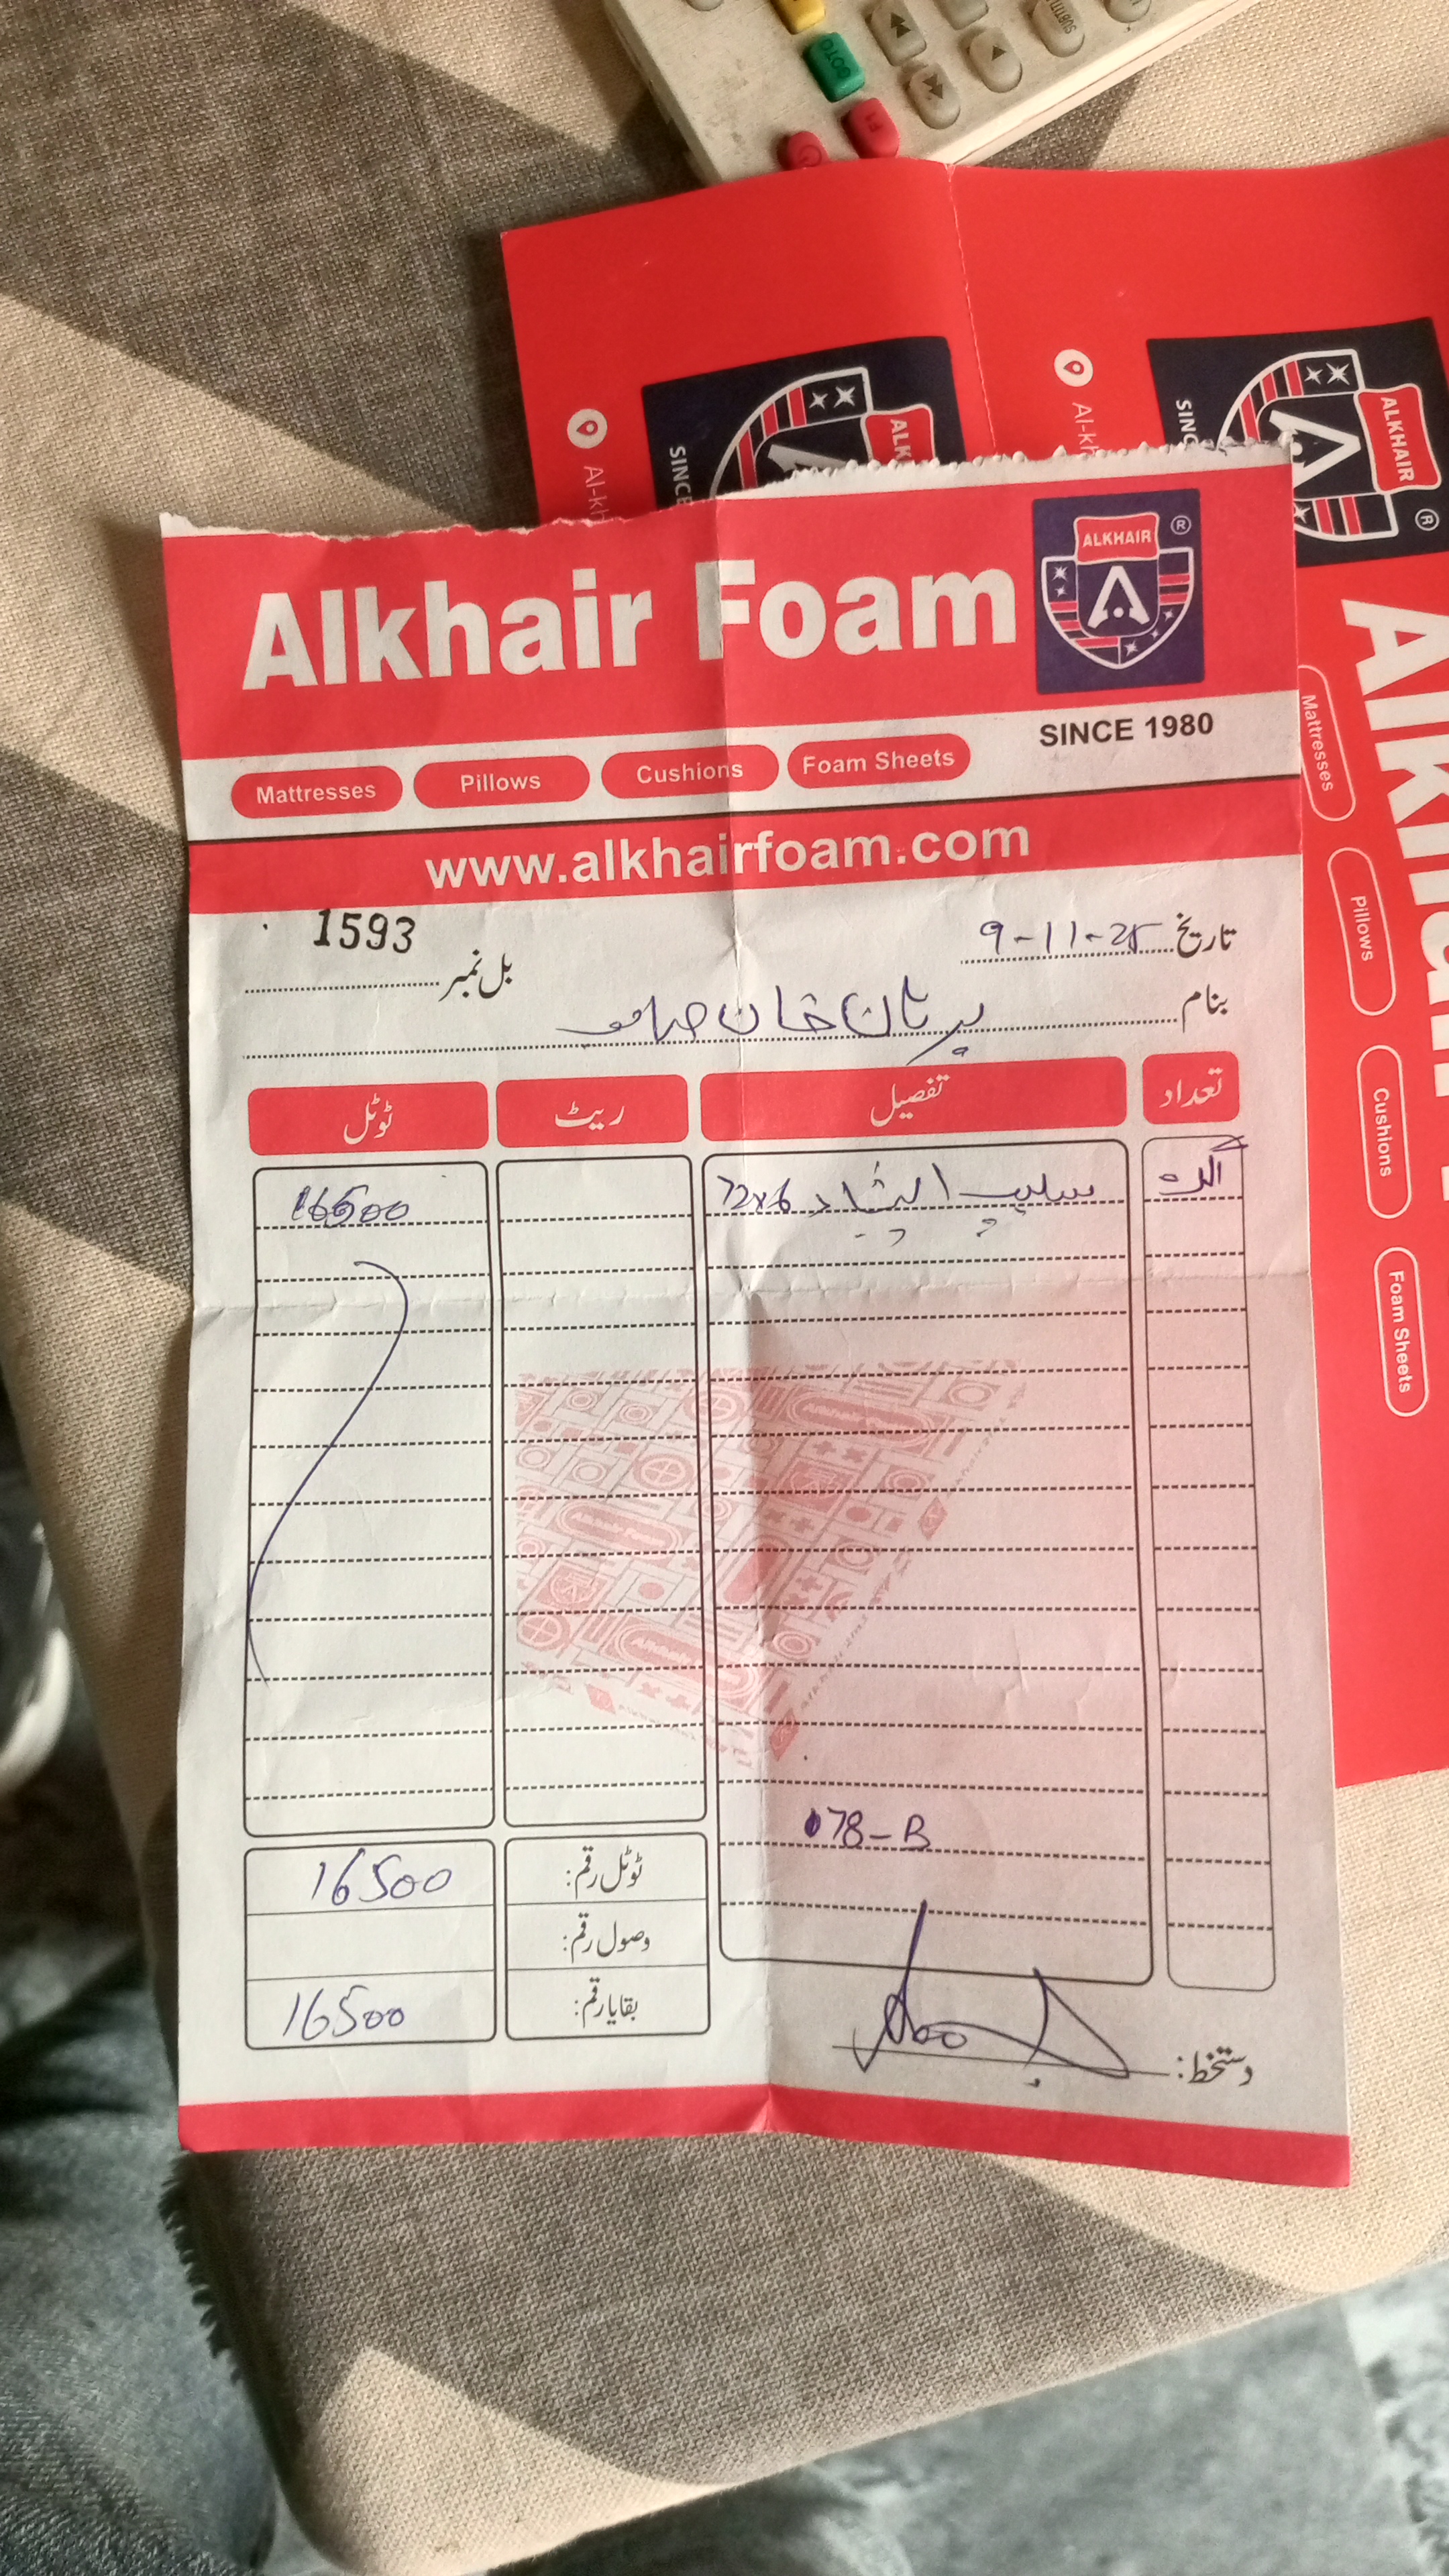 SUBTITL
GOTO
F1
SINCE
ALK
Al-kh
SINC
ALKHAIR
®
Al-kh
Alkhair Foam
ALKHAIR
®
SINCE 1980
Mattresses
Pillows
Cushions
Foam Sheets
www.alkhairfoam.com
تاریخ 9-11-25
بل نمبر 1593
بنام خان صاحب
تعداد
تفصیل
ریٹ
ٹوٹل
72x6
16500
078-B
ٹوٹل رقم: 16500
وصول رقم:
بقایا رقم: 16500
دستخط:
Mattresses
Pillows
Cushions
Foam Sheets